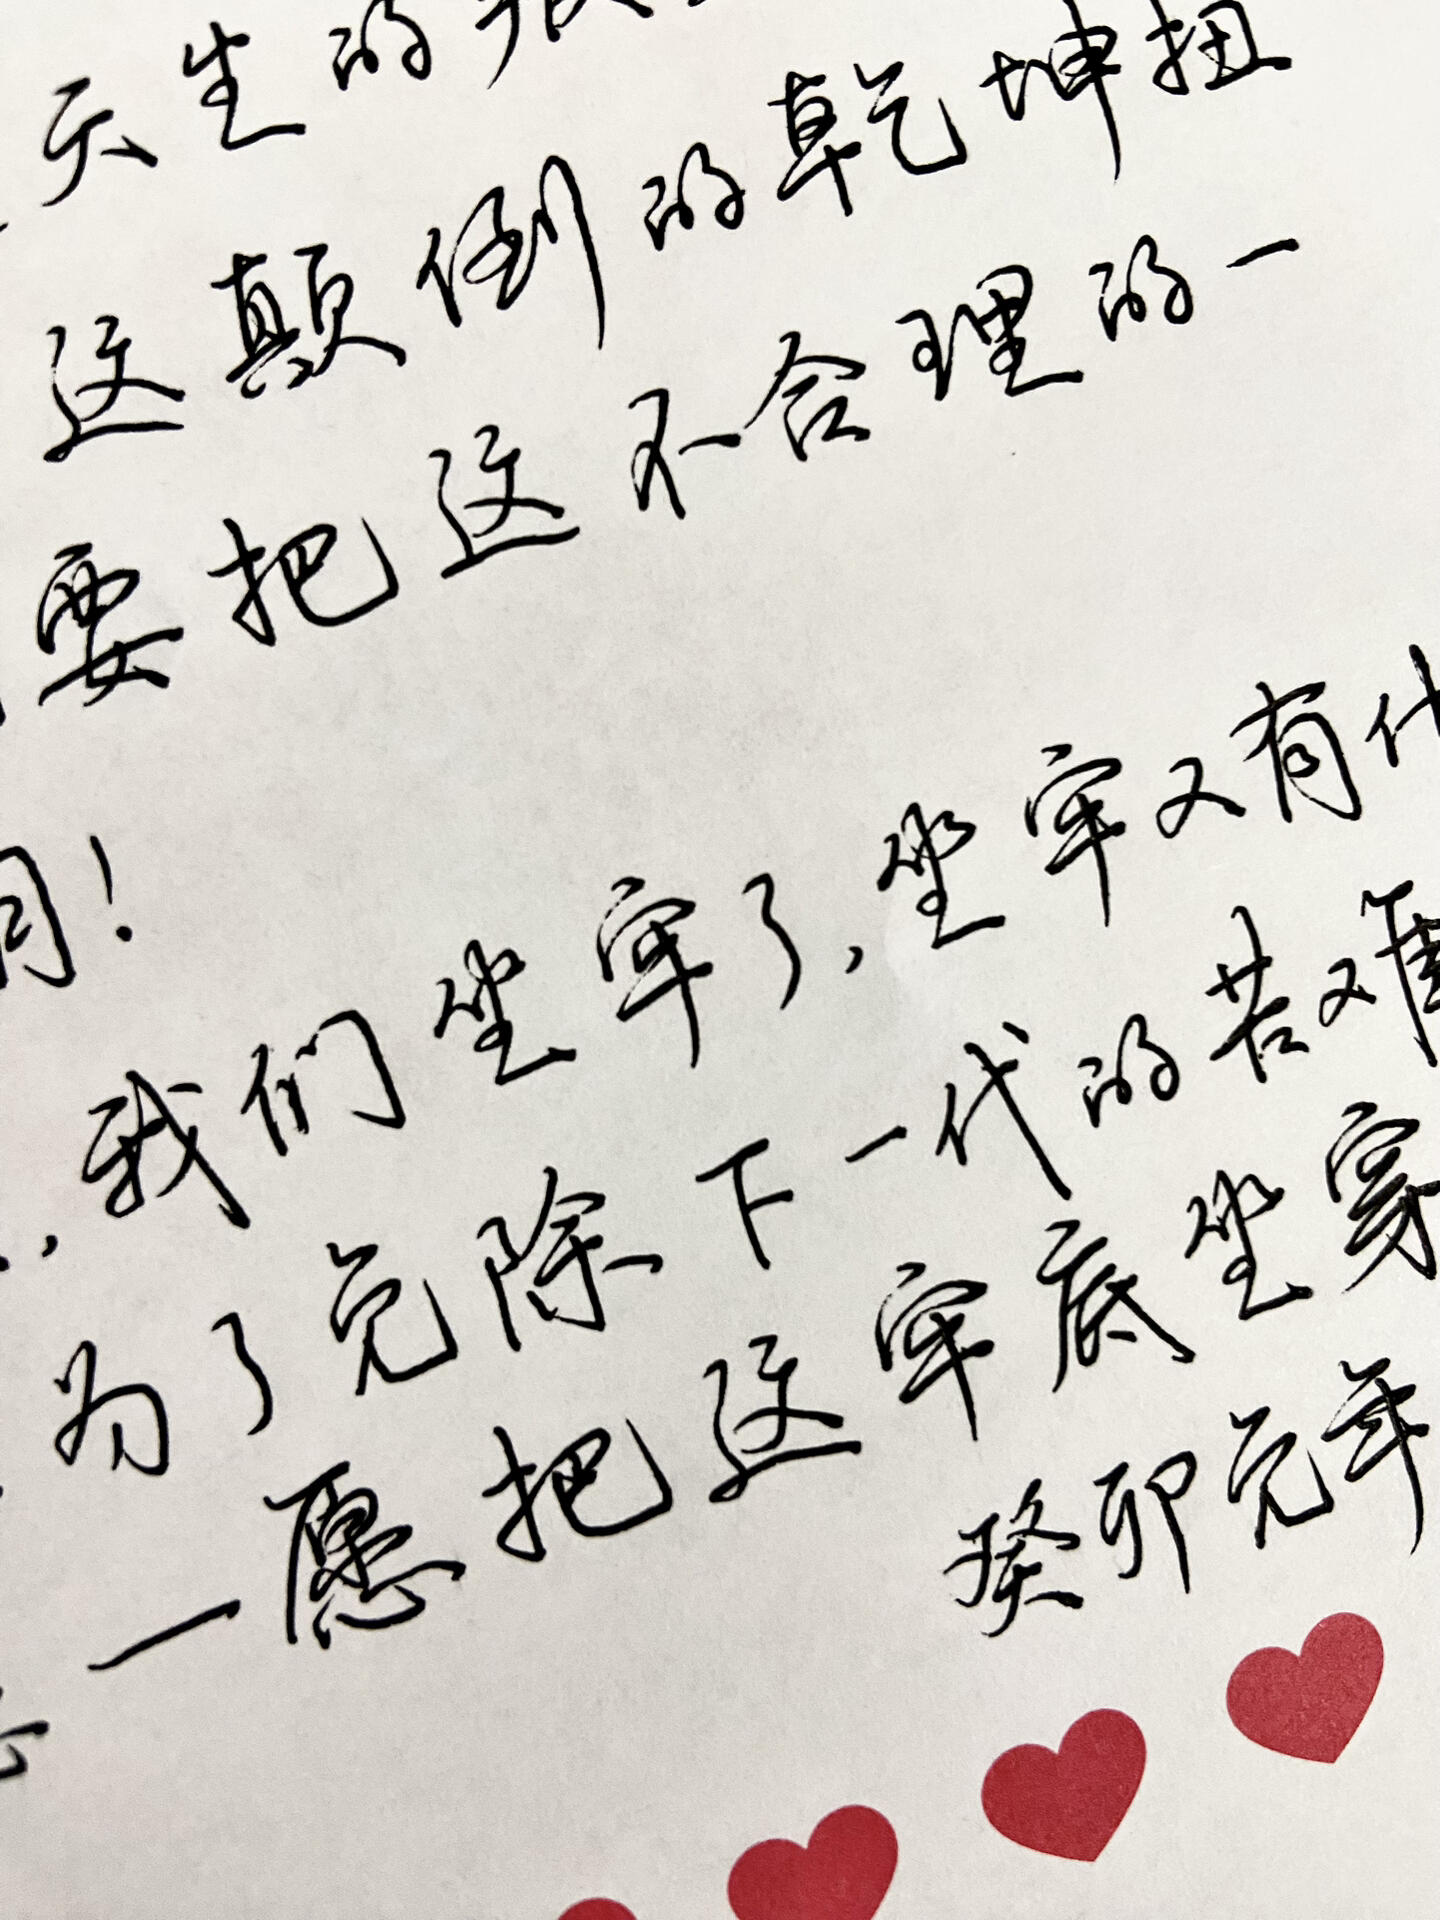 天生的
这颠倒的乾坤扭
要把这不合理的一
同!
,我们坐牢了,坐牢又有什
为了免除下一代的苦难
一愿把这牢底坐穿
癸卯元年